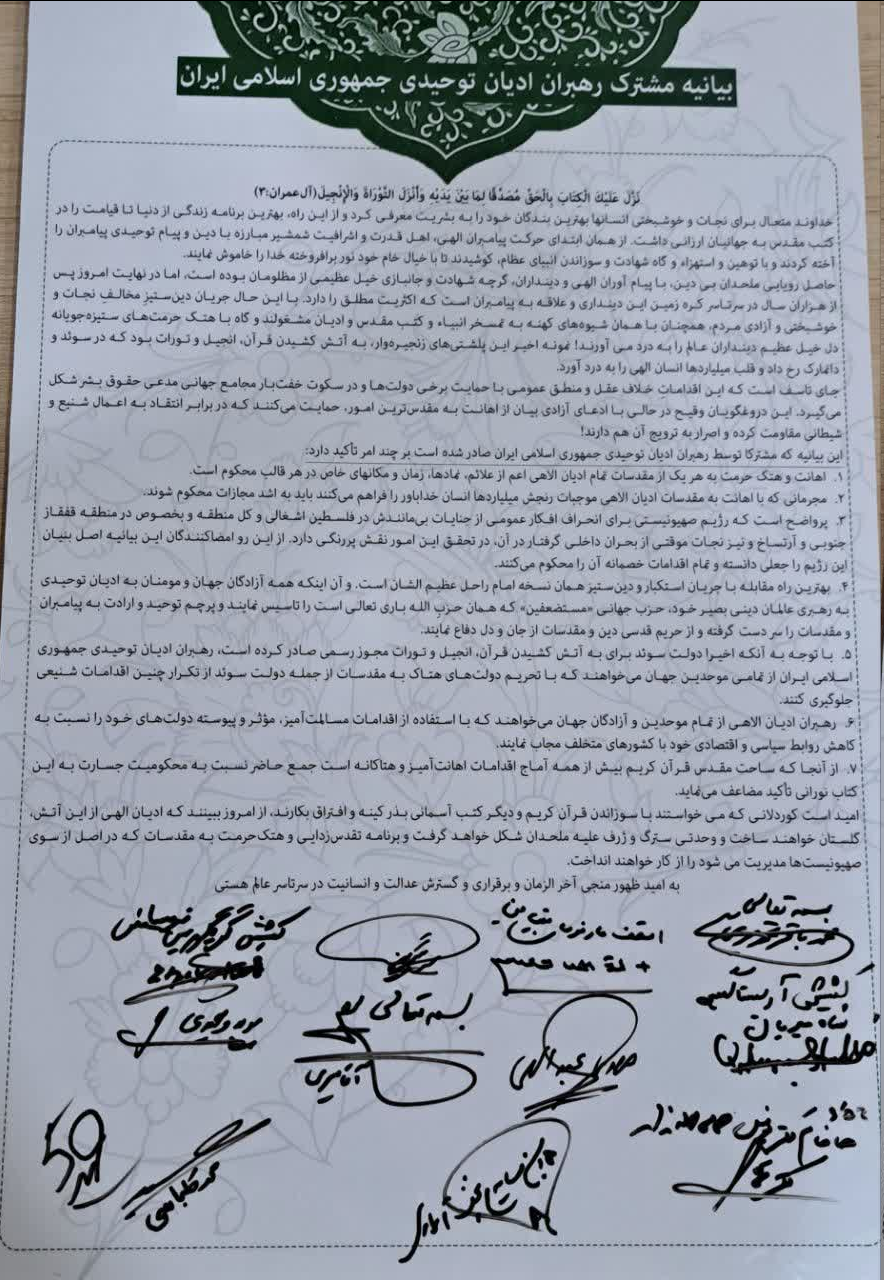 بیانیه مشترک رهبران ادیان توحیدی جمهوری اسلامی ایران
نَزَّلَ عَلَیْكَ الْكِتَابَ بِالْحَقِّ مُصَدِّقًا لِمَا بَیْنَ یَدَیْهِ وَأَنْزَلَ التَّوْرَاةَ وَالْإِنْجِیلَ (آل‌عمران:۳)
خداوند متعال برای نجات و خوشبختی انسانها بهترین بندگان خود را به بشریت معرفی کرد و از این راه، بهترین برنامه زندگی از دنیا تا قیامت را در
کتب مقدس به جهانیان ارزانی داشت. از همان ابتدای حرکت پیامبران الهی، اهل قدرت و اشرافیت شمشیر مبارزه با دین و پیام توحیدی پیامبران را
آخته کردند و با توهین و استهزاء و گاه شهادت و سوزاندن انبیای عظام، کوشیدند تا با خیال خام خود نور برافروخته خدا را خاموش نمایند.
حاصل رویایی ملحدان بی دین، با پیام آوران الهی و دینداران، گرچه شهادت و جانبازی خیل عظیمی از مظلومان بوده است، اما در نهایت امروز پس
از هزاران سال در سرتاسر کره زمین این دینداری و علاقه به پیامبران است که اکثریت مطلق را دارد. با این حال جریان دین‌ستیز مخالف نجات و
خوشبختی و آزادی مردم، همچنان با همان شیوه‌های کهنه به تمسخر انبیاء و کتب مقدس و ادیان مشغولند و گاه با هتک حرمت‌های ستیزه‌جویانه
دل خیل عظیم دینداران عالم را به درد می آورند! نمونه اخیر این پلشتی‌های زنجیره‌وار، به آتش کشیدن قرآن، انجیل و تورات بود که در سوئد و
دانمارک رخ داد و قلب میلیاردها انسان الهی را به درد آورد.
جای تاسف است که این اقدامات خلاف عقل و منطق عمومی با حمایت برخی دولت‌ها و در سکوت خفت‌بار مجامع جهانی مدعی حقوق بشر شکل
می‌گیرد. این دروغگویان وقیح در حالی با ادعای آزادی بیان از اهانت به مقدس‌ترین امور، حمایت می‌کنند که در برابر انتقاد به اعمال شنیع و
شیطانی مقاومت کرده و اصرار به ترویج آن هم دارند!
این بیانیه که مشترکا توسط رهبران ادیان توحیدی جمهوری اسلامی ایران صادر شده است بر چند امر تأکید دارد:
۱. اهانت و هتک حرمت به هر یک از مقدسات تمام ادیان الاهی اعم از علائم، نمادها، زمان و مکانهای خاص در هر قالب محکوم است.
۲. مجرمانی که با اهانت به مقدسات ادیان الاهی موجبات رنجش میلیاردها انسان خداباور را فراهم می‌کنند باید به اشد مجازات محکوم شوند.
۳. پرواضح است که رژیم صهیونیستی برای انحراف افکار عمومی از جنایات بی‌مانندش در فلسطین اشغالی و کل منطقه و بخصوص در منطقه قفقاز
جنوبی و آرتساخ و نیز نجات موقتی از بحران داخلی گرفتار در آن، در تحقق این امور نقش پررنگی دارد. از این رو امضاکنندگان این بیانیه اصل بنیان
این رژیم را جعلی دانسته و تمام اقدامات خصمانه آن را محکوم می‌کنند.
۴. بهترین راه مقابله با جریان استکبار و دین‌ستیز همان نسخه امام راحل عظیم الشان است. و آن اینکه همه آزادگان جهان و مومنان به ادیان توحیدی
به رهبری عالمان دینی بصیر خود، حزب جهانی «مستضعفین» که همان حزب الله باری تعالی است را تاسیس نمایند و پرچم توحید و ارادت به پیامبران
و مقدسات را سر دست گرفته و از حریم قدسی دین و مقدسات از جان و دل دفاع نمایند.
۵. با توجه به آنکه اخیرا دولت سوئد برای به آتش کشیدن قرآن، انجیل و تورات مجوز رسمی صادر کرده است، رهبران ادیان توحیدی جمهوری
اسلامی ایران از تمامی موحدین جهان می‌خواهند که با تحریم دولت‌های هتاک به مقدسات از جمله دولت سوئد از تکرار چنین اقدامات شنیعی
جلوگیری کنند.
۶. رهبران ادیان الاهی از تمام موحدین و آزادگان جهان می‌خواهند که با استفاده از اقدامات مسالمت‌آمیز، مؤثر و پیوسته دولت‌های خود را نسبت به
کاهش روابط سیاسی و اقتصادی خود با کشورهای متخلف مجاب نمایند.
۷. از آنجا که ساحت مقدس قرآن کریم بیش از همه آماج اقدامات اهانت‌آمیز و هتاکانه است جمع حاضر نسبت به محکومیت جسارت به این
کتاب نورانی تأکید مضاعف می‌نماید.
امید است کوردلانی که می خواستند با سوزاندن قرآن کریم و دیگر کتب آسمانی بذر کینه و افتراق بکارند، از امروز ببینند که ادیان الهی از این آتش،
گلستان خواهند ساخت و وحدتی سترگ و ژرف علیه ملحدان شکل خواهد گرفت و برنامه تقدس‌زدایی و هتک‌حرمت به مقدسات که در اصل از سوی
صهیونیست‌ها مدیریت می شود را از کار خواهند انداخت.
به امید ظهور منجی آخر الزمان و برقراری و گسترش عدالت و انسانیت در سرتاسر عالم هستی
بسمه تعالی
اسقف مارنرسای بنیامین
کشیش گریگوریس
کشیش آرستاکس
شاه میریان
بسمه تعالی
مهدی عبداللهی
آقامیری
محمد طباطبایی